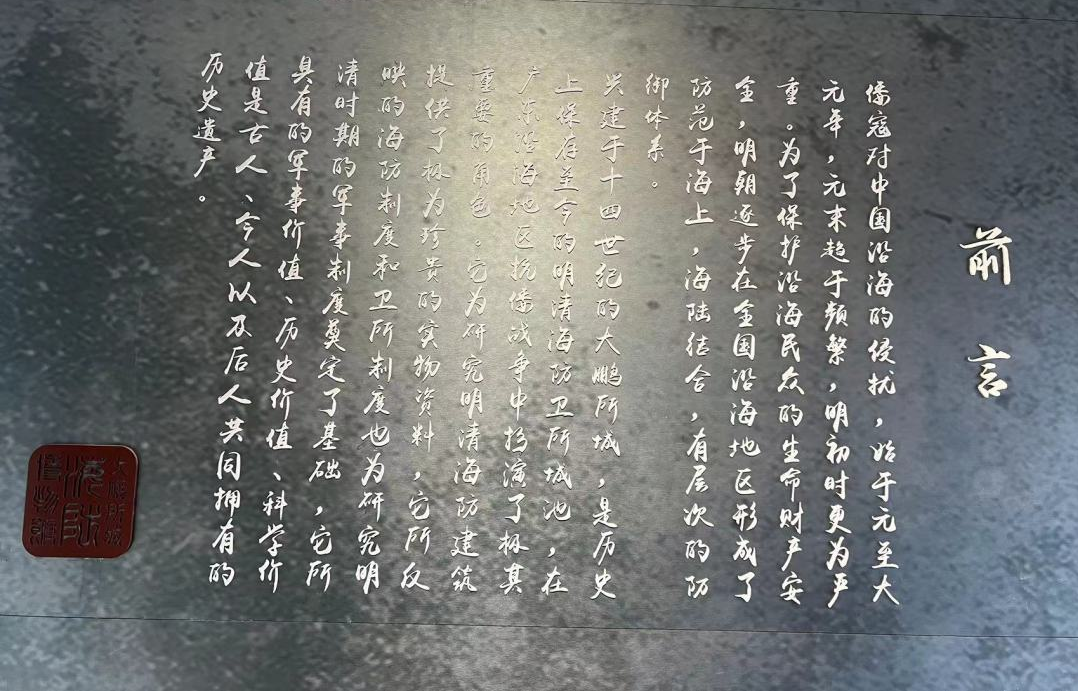 前言
倭寇对中国沿海的侵扰，始于元至大
元年，元末趋于频繁，明初时更为严
重。为了保护沿海民众的生命财产安
全，明朝逐步在全国沿海地区形成了
防范于海上，海陆结合，有层次的防
御体系。
兴建于十四世纪的大鹏所城，是历史
上保存至今的明清海防卫所城池，在
广东沿海地区抗倭战争中扮演了极其
重要的角色。它为研究明清海防建筑
提供了极为珍贵的实物资料，它所反
映的海防制度和卫所制度也为研究明
清时期的军事制度奠定了基础，它所
具有的军事价值、历史价值、科学价
值是古人、今人以及后人共同拥有的
历史遗产。
大鹏所城
海防
博物馆